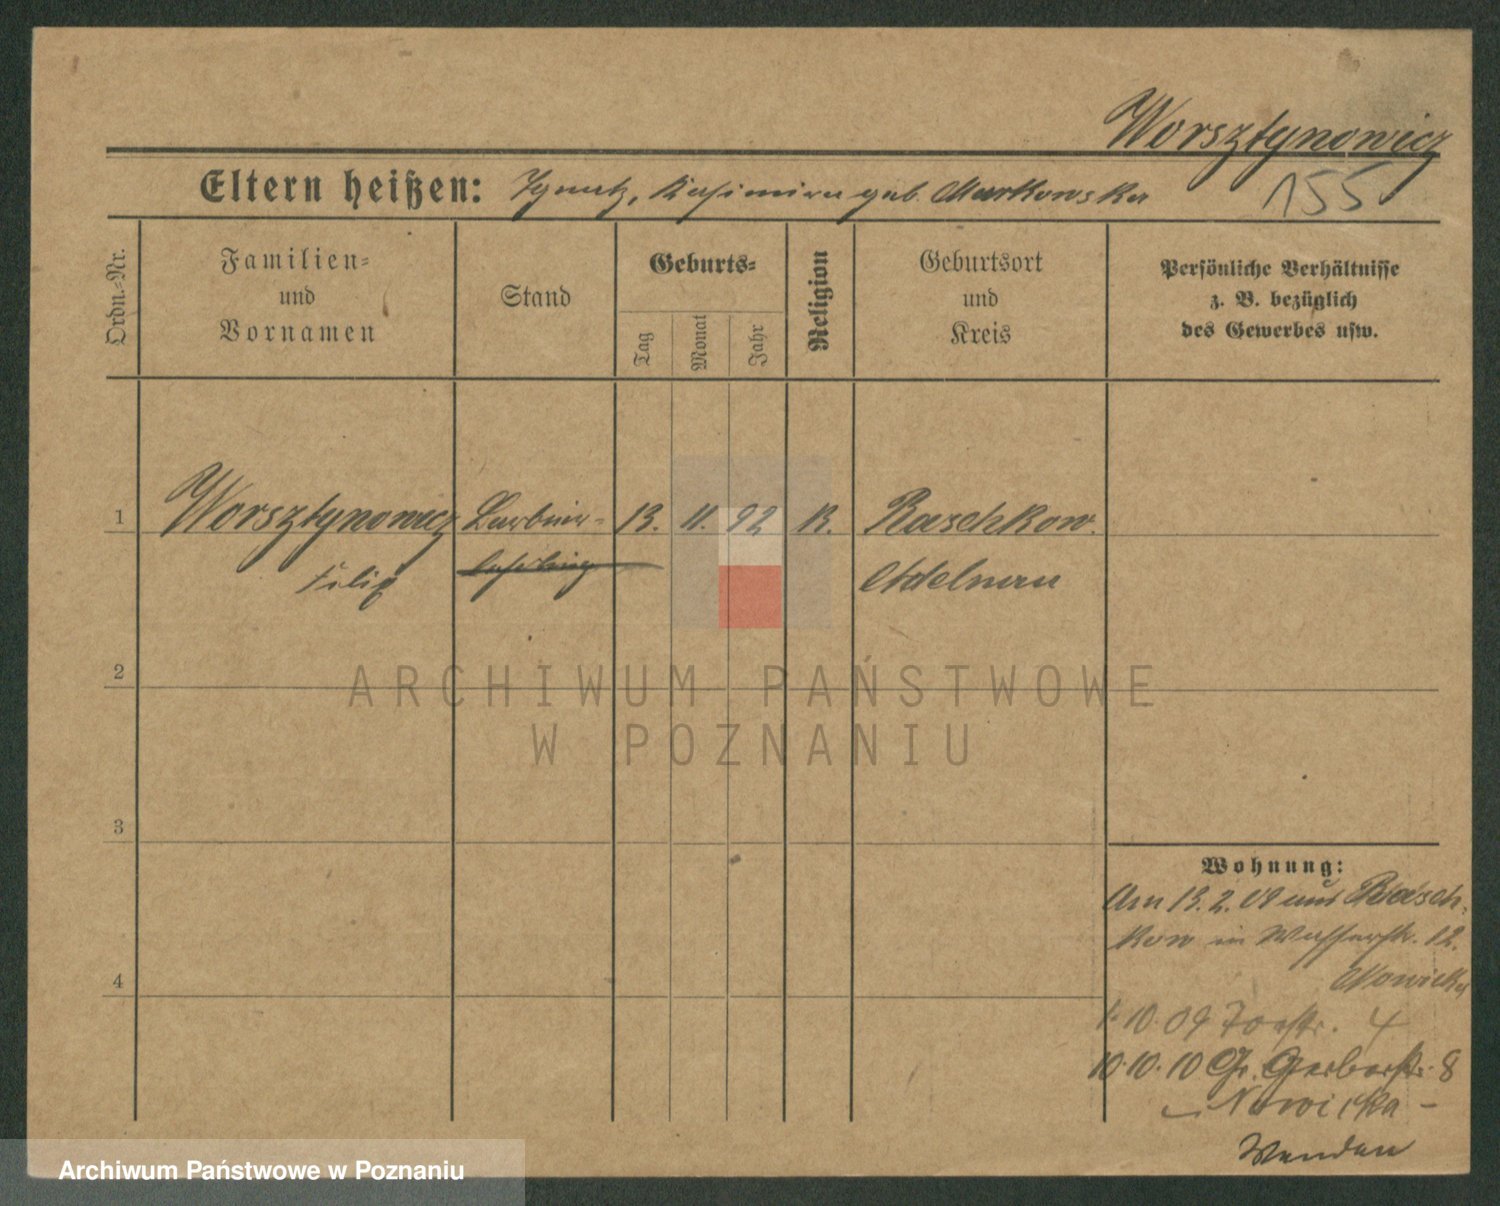 Worsztynowicz
155
Eltern heißen: Ignatz, Kasimira geb. Markowska
Ordn.-Nr.
Familien-
und
Vornamen
Stand
Geburts-
Tag
Monat
Jahr
Religion
Geburtsort
und
Kreis
Persönliche Verhältnisse
z. B. bezüglich
des Gewerbes usw.
1
Worsztynowicz
Filip
Barbier-
lehrling
13. 11. 92
K.
Raschkow.
Adelnau
2
ARCHIWUM PAŃSTWOWE
W POZNANIU
3
4
Wohnung:
Am 13.2.09 aus Rasch-
kow in Wasserstr. 12.
Nowicka
1.10.09 Torstr. 4
10.10.10 Gr. Gerberstr. 8
Nowicka -
Wenden
Archiwum Państwowe w Poznaniu